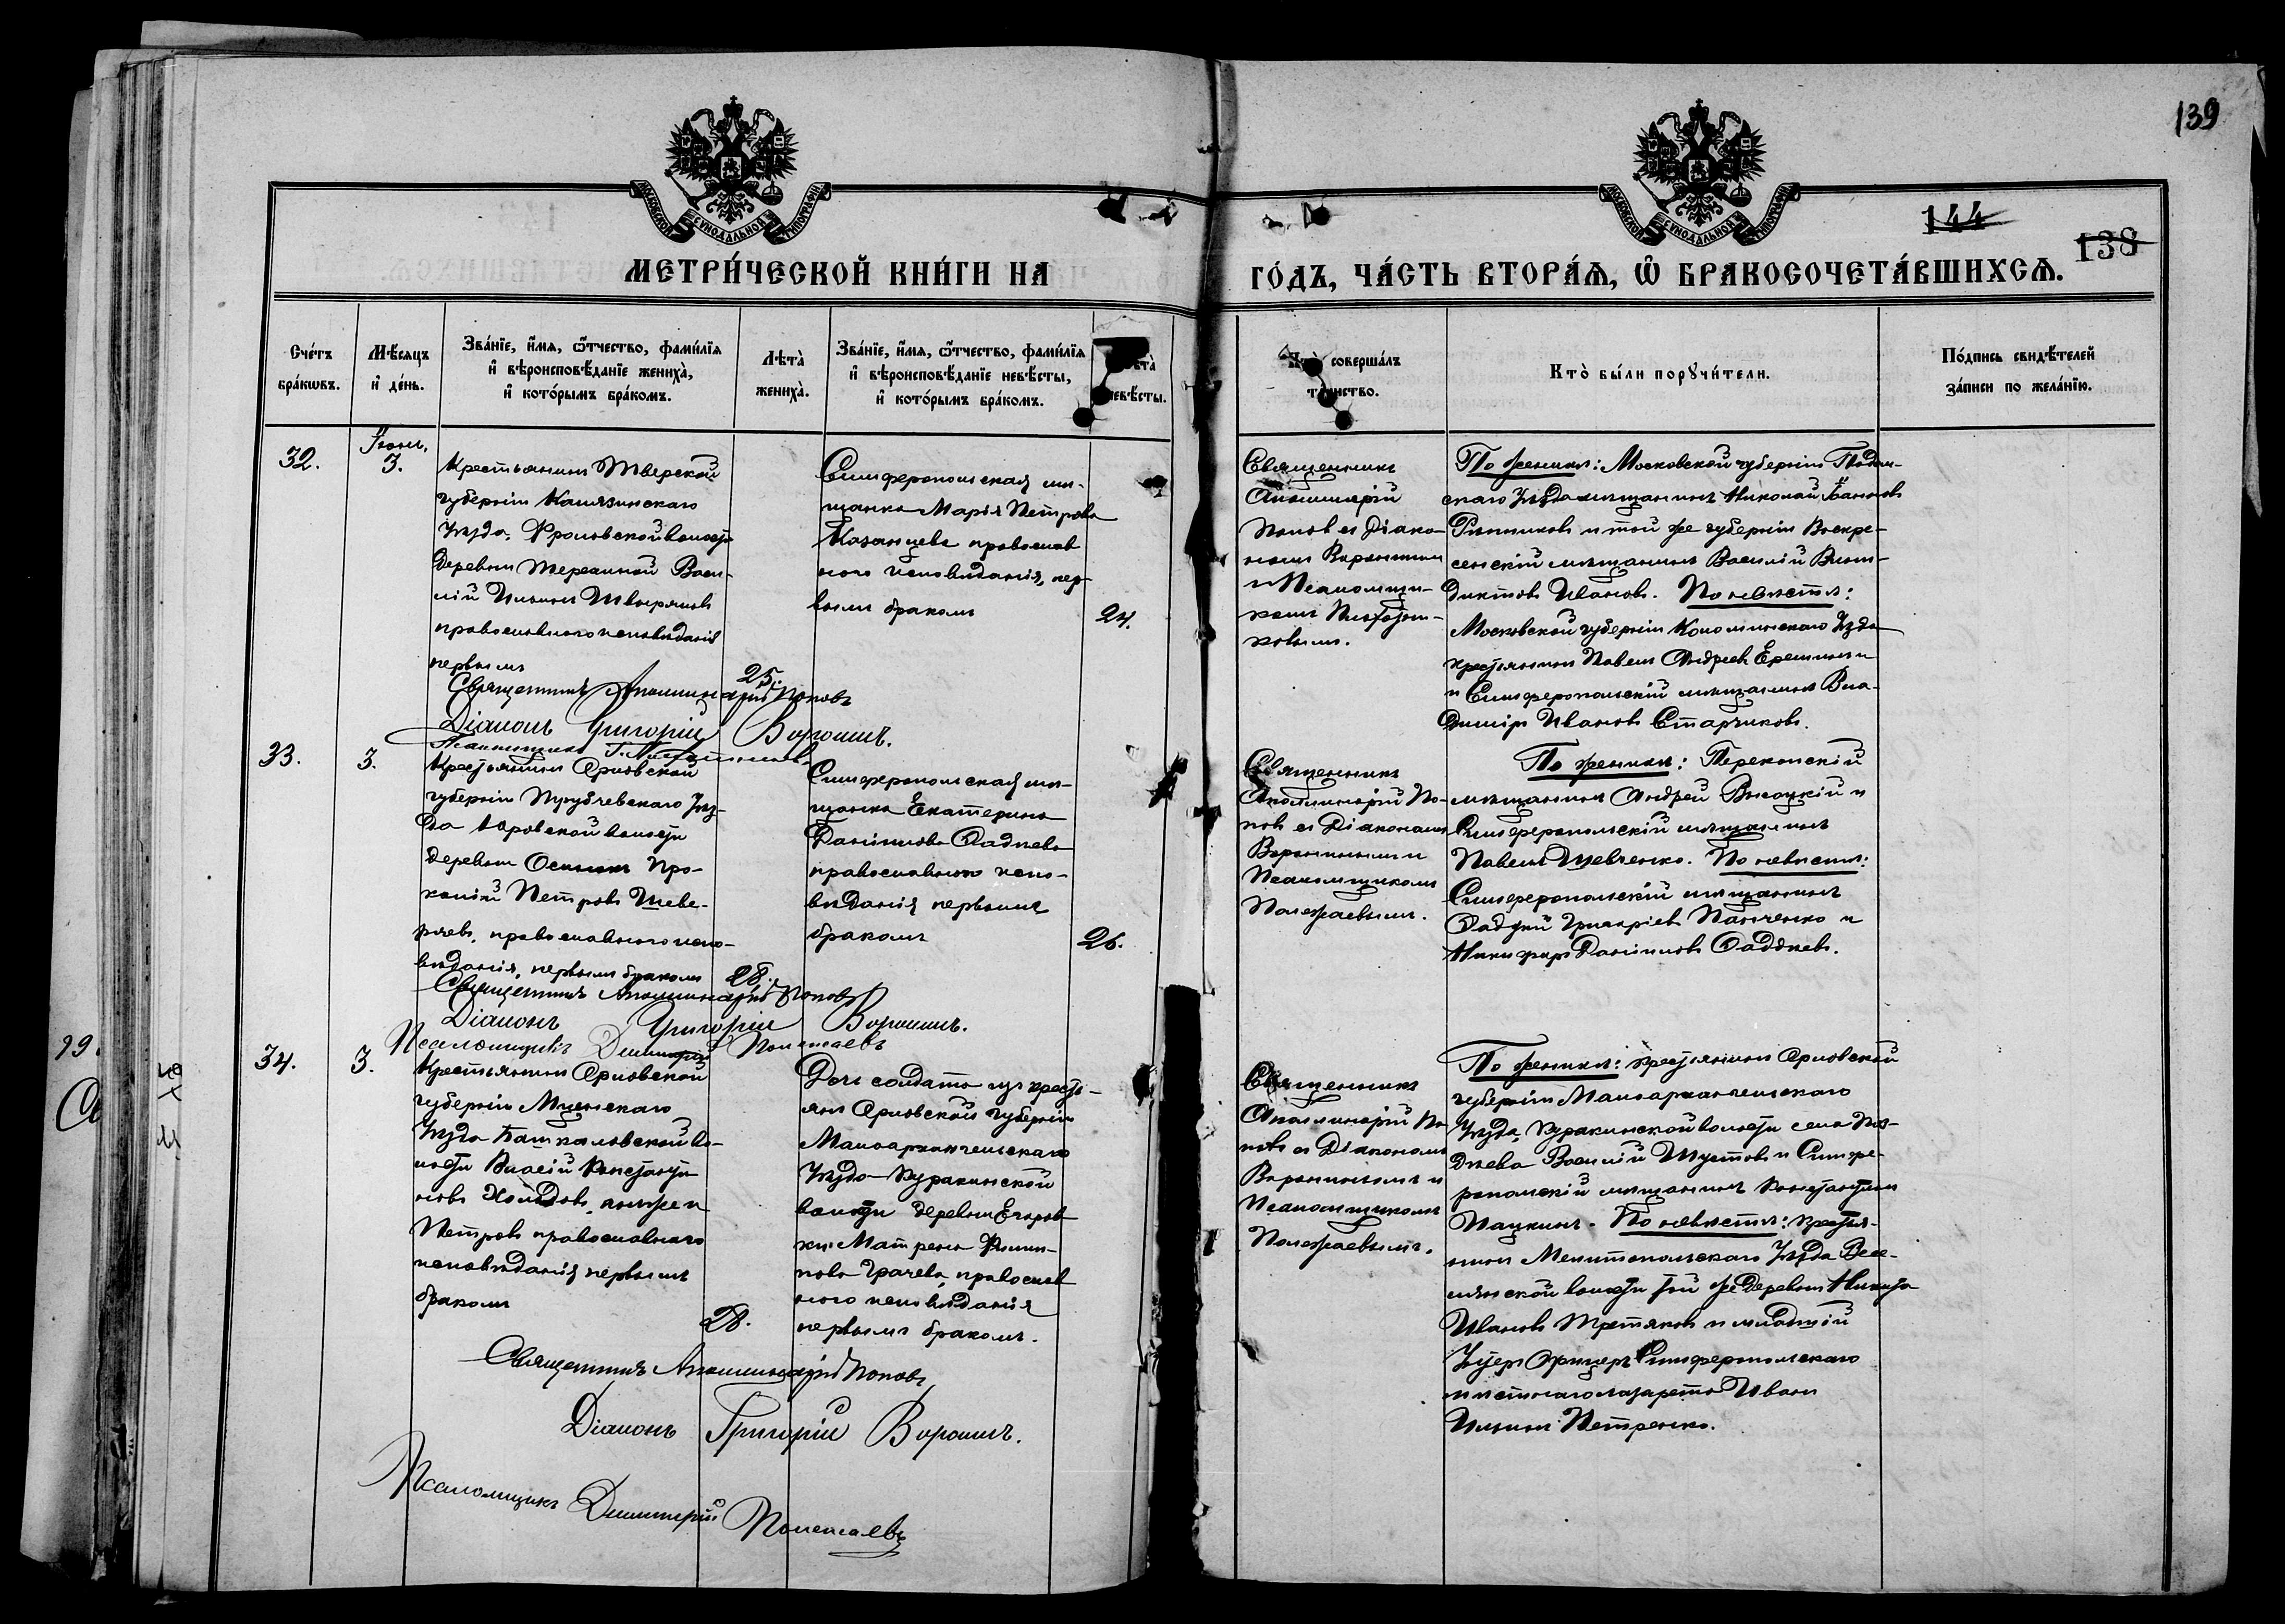 139
144
138
МОСКОВСКОЙ СѴНОДАЛЬНОЙ ТИПОГРАФІИ
МОСКОВСКОЙ СѴНОДАЛЬНОЙ ТИПОГРАФІИ
МЕТРИ́ЧЕСКОЙ КНИ́ГИ НА
ГО́ДЪ, ЧА́СТЬ ВТОРА́Ѧ, Ѽ БРАКОСОЧЕТА́ВШИХСѦ.
Сче́тъ бра́кѡвъ.
Мѣ́сяцъ и҆ де́нь.
Зва́нїе, и҆́мя, ѻ҆́тчество, фами́лїя
и҆ вѣроисповѣ́данїе жениха̀,
и҆ кото́рымъ бра́комъ.
Лѣта̀ жениха̀.
Зва́нїе, и҆́мя, ѻ҆́тчество, фами́лїя
и҆ вѣроисповѣ́данїе невѣ́сты,
и҆ кото́рымъ бра́комъ.
невѣ́сты.
соверша́лъ
Кто̀ бы́ли порꙋчи́тели.
По́дпись свидѣ́телей
за́писи по жела́нїю.
32.
Іюнь
3.
Крестьянинъ Тверской
губерніи Калязинскаго
Уѣзда, Фроловской волости
деревни Васи-
лій Ильинъ
православнаго исповѣданія
первымъ
25.
Симферопольская мѣ-
щанка Марія Петрова
Казанцева православ
наго исповѣданія, пер-
вымъ бракомъ
24.
Священникъ
Аполлинарій
Поповъ съ Діако-
номъ Ворониным
и Псаломщи-
комъ
По женихѣ: Московской губерніи Подоль-
скаго Уѣзда мѣщанинъ Николай Ивановъ
и той же губерніи Воскре-
сенскій мѣщанинъ Василій Вене-
диктовъ Ивановъ. По невѣстѣ:
Московской губерніи Коломенскаго Уѣзда
крестьянинъ Павелъ Андреевъ
и Симферопольскій мѣщанинъ Вла-
диміръ Ивановъ Старчиковъ.
Священникъ Аполлинарій Поповъ
Діаконъ Григорій Воронинъ.
Псаломщикъ
33.
3.
Крестьянинъ Орловской
губерніи Трубчевскаго Уѣз-
да волости
деревни Про-
копій Петровъ Шеве-
православнаго испо-
вѣданія, первымъ бракомъ
28.
Симферопольская мѣ-
щанка Екатерина
Даніилова Фадѣева
православнаго испо-
вѣданія первымъ
бракомъ
26.
Священникъ
Аполлинарій По-
повъ съ Діакономъ
Воронинымъ и
Псаломщикомъ
Полежаевымъ.
По женихѣ: Перекопскій
мѣщанинъ Андрей Высоцкій и
Симферопольскій мѣщанинъ
Павелъ Шевченко. По невѣстѣ:
Симферопольскій мѣщанинъ
Фаддей Григоріевъ Панченко и
Никифоръ Даніиловъ Фаддѣевъ.
Священникъ Аполлинарій Поповъ
Діаконъ Григорій Воронинъ.
Псаломщикъ Димитрій Полежаевъ
34.
3.
Крестьянинъ Орловской
губерніи Мценскаго
Уѣзда Башкатовской во-
лости Власій Константи-
новъ онъ же и
Петровъ православнаго
исповѣданія первымъ
бракомъ
28.
Дочь солдата изъ кресть-
янъ Орловской губерніи
Малоархангельскаго
Уѣзда Куракинской
волости деревни Егоров
ки Матрена Филип-
пова Грачева, православ
наго исповѣданія
первымъ бракомъ.
Священникъ
Аполлинарій По-
повъ съ Діакономъ
Воронинымъ и
Псаломщикомъ
Полежаевымъ.
По женихѣ: крестьянинъ Орловской
губерніи Малоархангельскаго
Уѣзда, Куракинской волости села
Василій Шустовъ и Симфе-
ропольскій мѣщанинъ Константинъ
Пацкинъ. По невѣстѣ: крестья-
нинъ Мелитопольскаго Уѣзда Весе-
лянской волости той же деревни Никита
Ивановъ Третьяковъ и младшій
Унтеръ Офицеръ Симферопольскаго
мѣстнаго лазарета Иванъ
Ильинъ Петренко.
Священникъ Аполлинарій Поповъ
Діаконъ Григорій Воронинъ.
Псаломщикъ Димитрій Полежаевъ